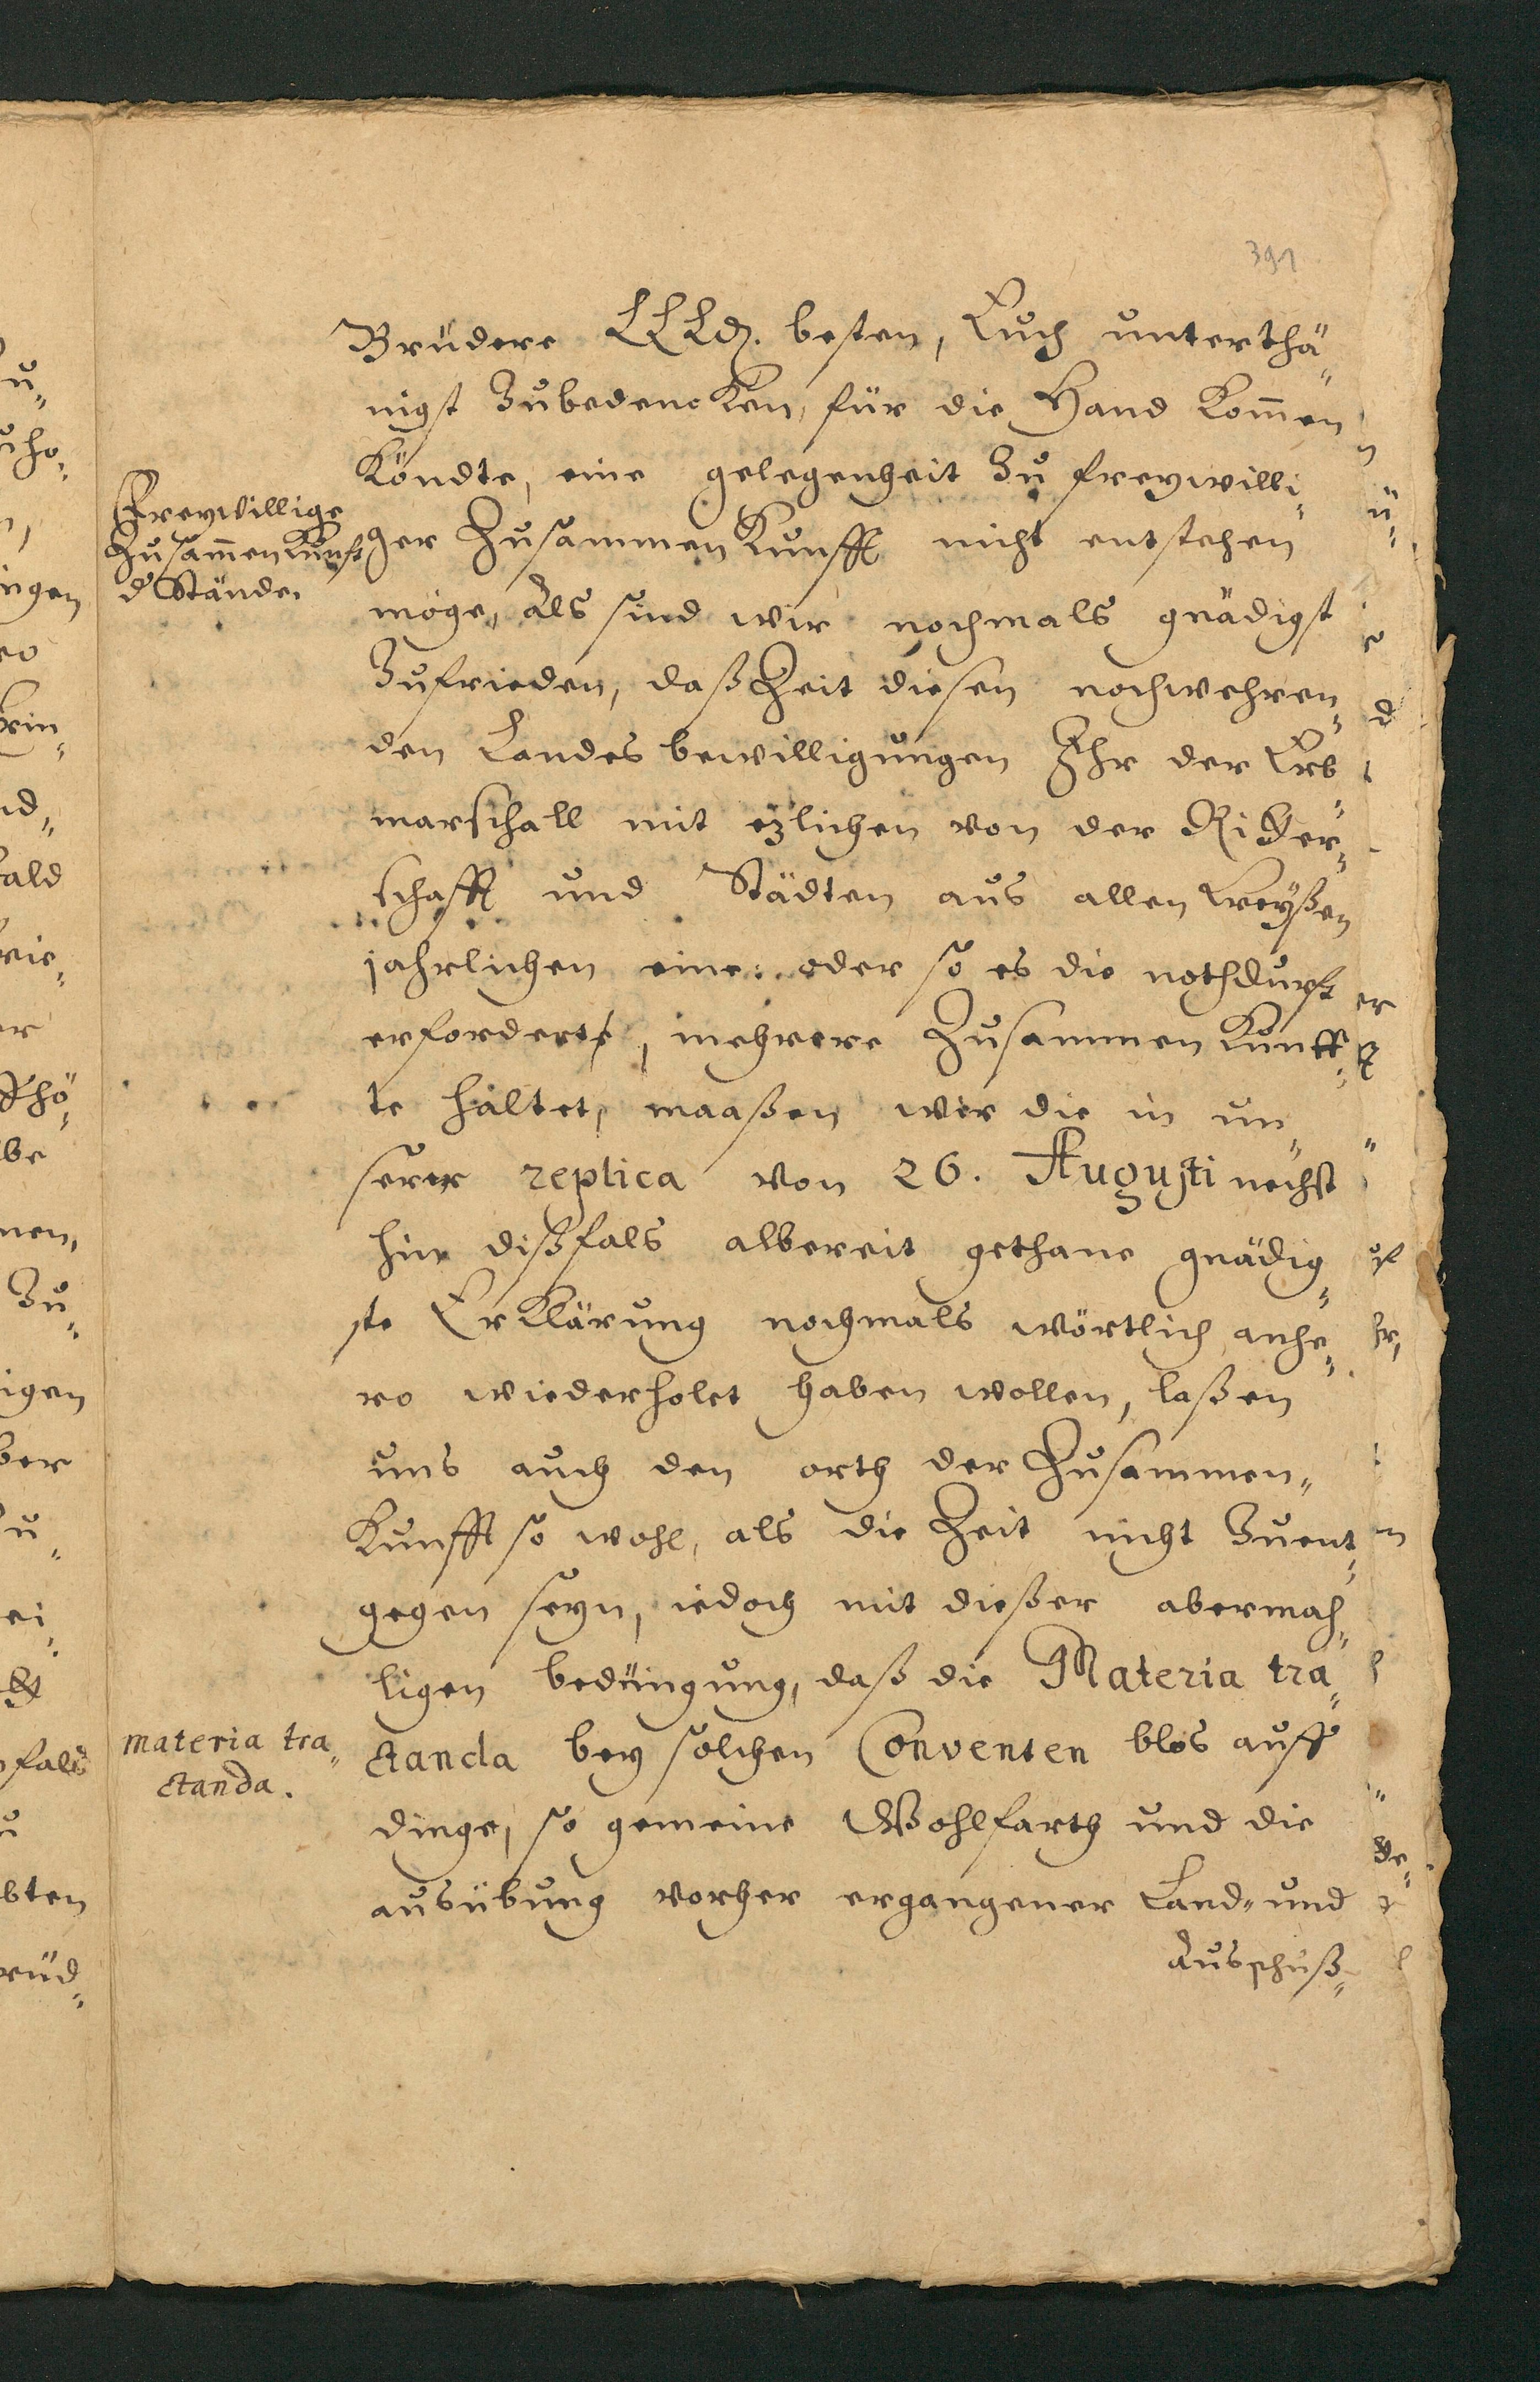 391
Brüdere LLLd. besten, Euch unterthä„
nigst Zubedencken, für die Hand kom̄en
Köndte, eine gelegenheit Zu freywilli„
Freywillige
Zusam̄enkunft
d Stände.
ger Zusammen Kunfft nicht entstehen
möge, Als sind wir nochmals gnädigst
Zufrieden, daß Zeit diesen nochwehren„
den Landes bewilligungen Ihr der Erb„
marschall mit ezlichen von der Ritter„
schafft und Städten aus allen Creyßen
jährlichen eine oder so es die nothdurft
erfordert, mehrere Zusammen Kunff„
te haltet, maaßen wir die in un„
serer replica von 26. Augusti nechst
hin dißfals albereit gethane gnädig„
ste Erklärung nochmals wörtlich anhe„
ro wiederholet haben wollen, laßen
uns auch den orth der Zusammen„
Kunfft so wohl, als die Zeit nicht Zuent„
gegen seyn, iedoch mit dießer abermah„
ligen bedüngung, daß die Materia tra„
materia tra„
ctanda.
ctanda bey solchen Conventen blos auff
dinge, so gemeine Wohlfarth und die
ausübung vorher ergangener Land- und
Ausschuß„